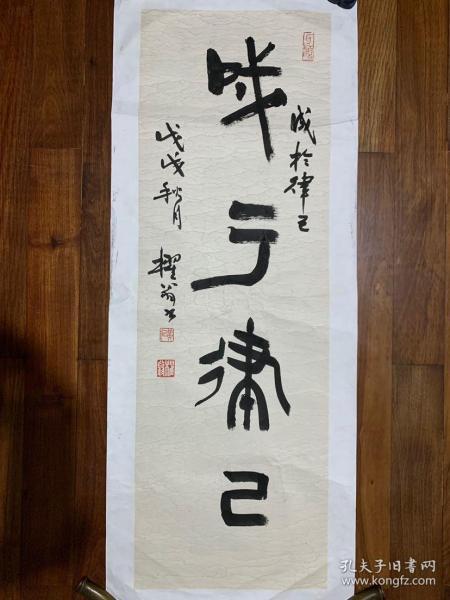 成于律己
成於律己
戊戌秋月 櫂翁书
孔夫子旧书网
www.kongfz.com